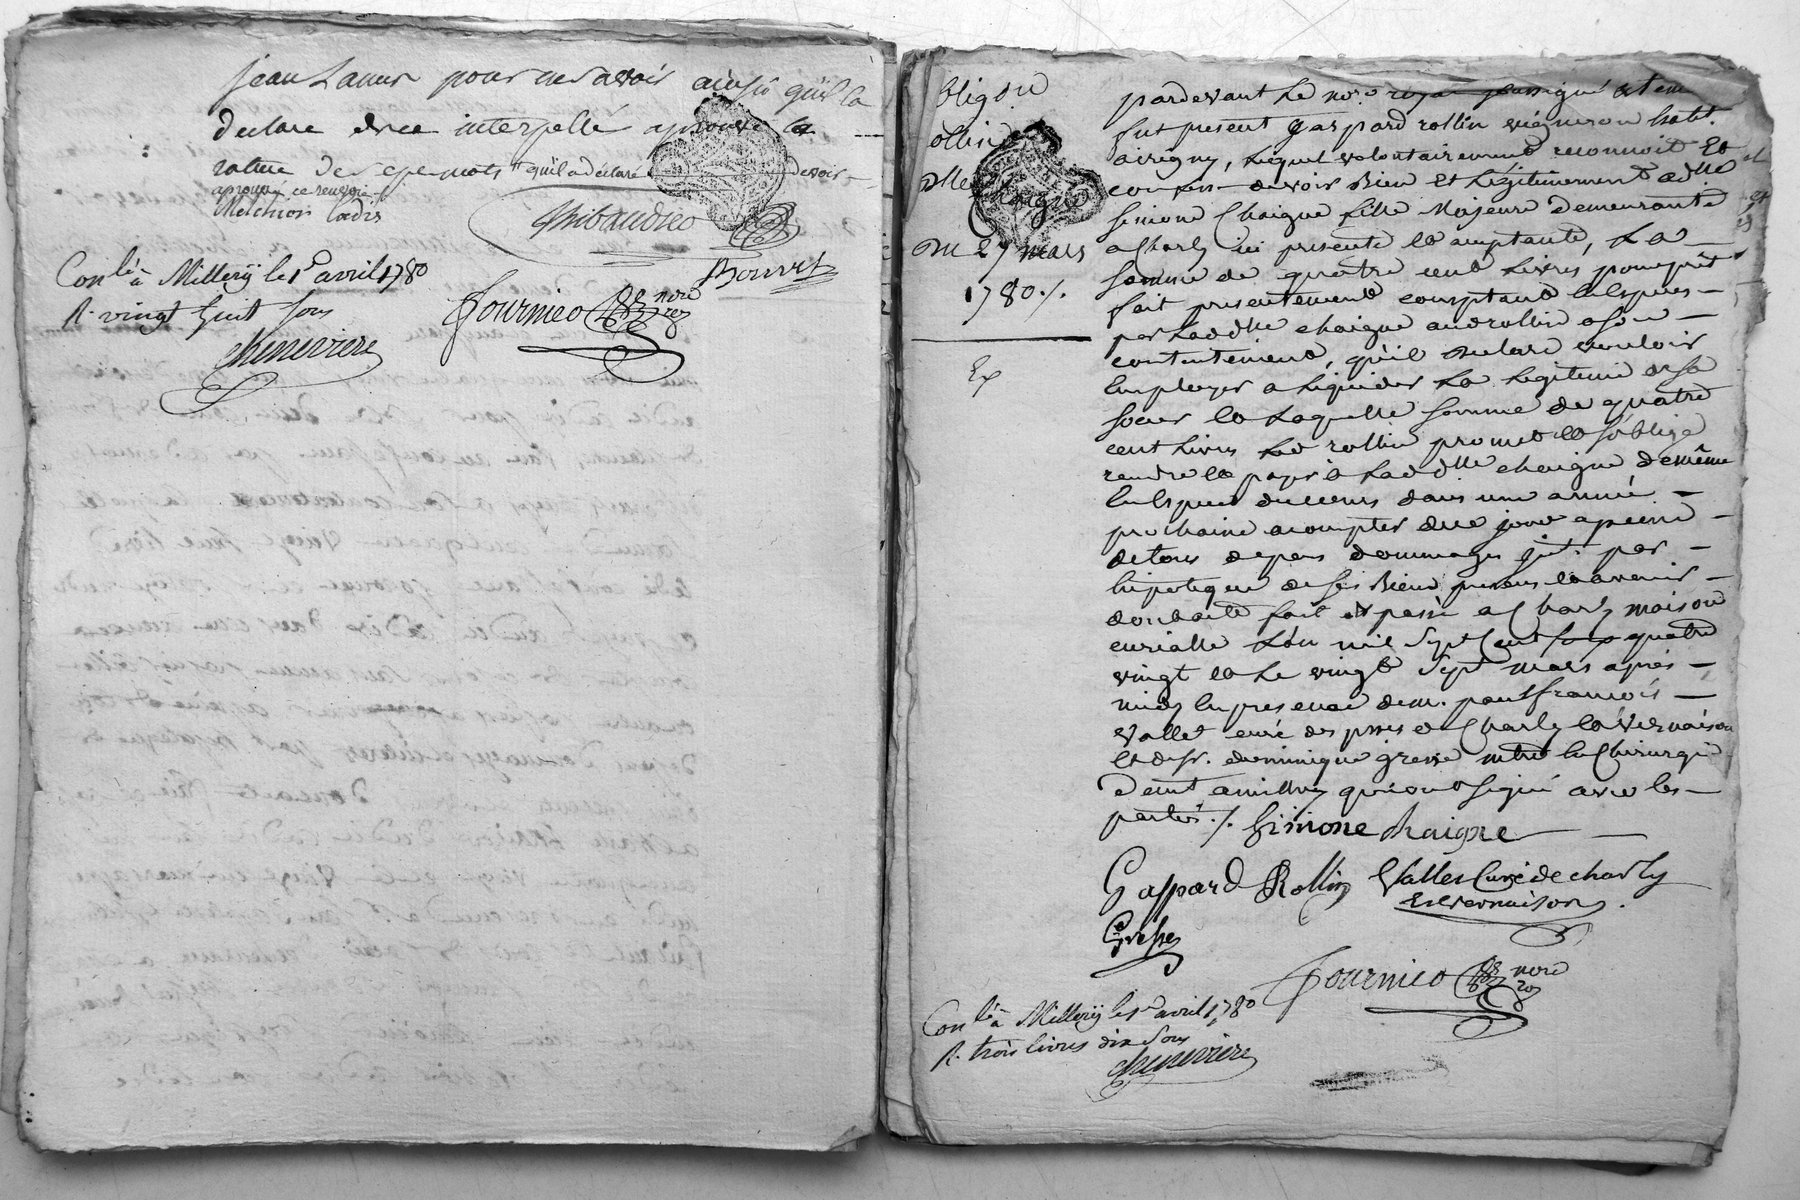 jean Lanur pour ne savoir ainsi qu'il la
declare enquis et interpellé aprouvé la
rature de sept mots qu'il a déclaré devoir
aprouvé ce renvoir
Melchior Cadis
Thibaudier
Bouvet
Con.lé à Millerÿ le 1.er avril 1780
R. vingt huit sous
Chenevière
Fournieo nore
roy
obligõn
rollin
a dlle
chaigne
du 27 mars
1780 ./.
Ex
pardevant Le no.re royal soussigné et tem
fut present Gaspard rollin vigneron habt.
a irigny, Lequel volontairement reconnoit et
confesse devoir Bien et Legitimement a dlle
simone Chaigne fille Majeure demeurante
a Charly ici presente et acceptante, La
somme de quatre cent Livres pour prêt
fait presentement comptant en Especes
par Ladlle chaigne aud rollin a son
contentement, qu'il declare vouloir
Employer a Liquider La Legitime de sa
soeur et Laquelle somme de quatre
cent Livres Led rollin promet et s'oblige
rendre et payer à Laddlle chaigne de même
En Especes de cours dans une année
prochaine a compter de ce jour a peine
de tous depens dommages int. par
hipoteque de ses Biens presens et avenir
dont acte fait et passé a Charly maison
curialle L'an mil sept Cent quatre
vingt et Le vingt sept mars après
midy En presence de m. paul françois
Vallet curé des psses de Charly et Vernaison
et de sr. dominique gresse mtre En Chirurgie
demt a millery qui ont signé avec les
parties ./. Simone chaigne
Gaspard Rollin Vallet Curé de charly
Et vernaison
Gresse
Fournieo nore
roy
Con.lé à Millerÿ le 1.er avril 1780
R. trois livres dix sous
Chenevière